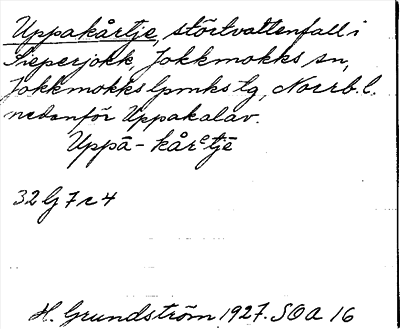 Uppakårtje, störtvattenfall i
Sieperjokk, Jokkmokks sn,
Jokkmokks lpmks tg, Norrb. l.
nedanför Uppakalav.
Uppā-kårᵉtjē
32 G 7 c 4
H. Grundström 1927. SOA 16